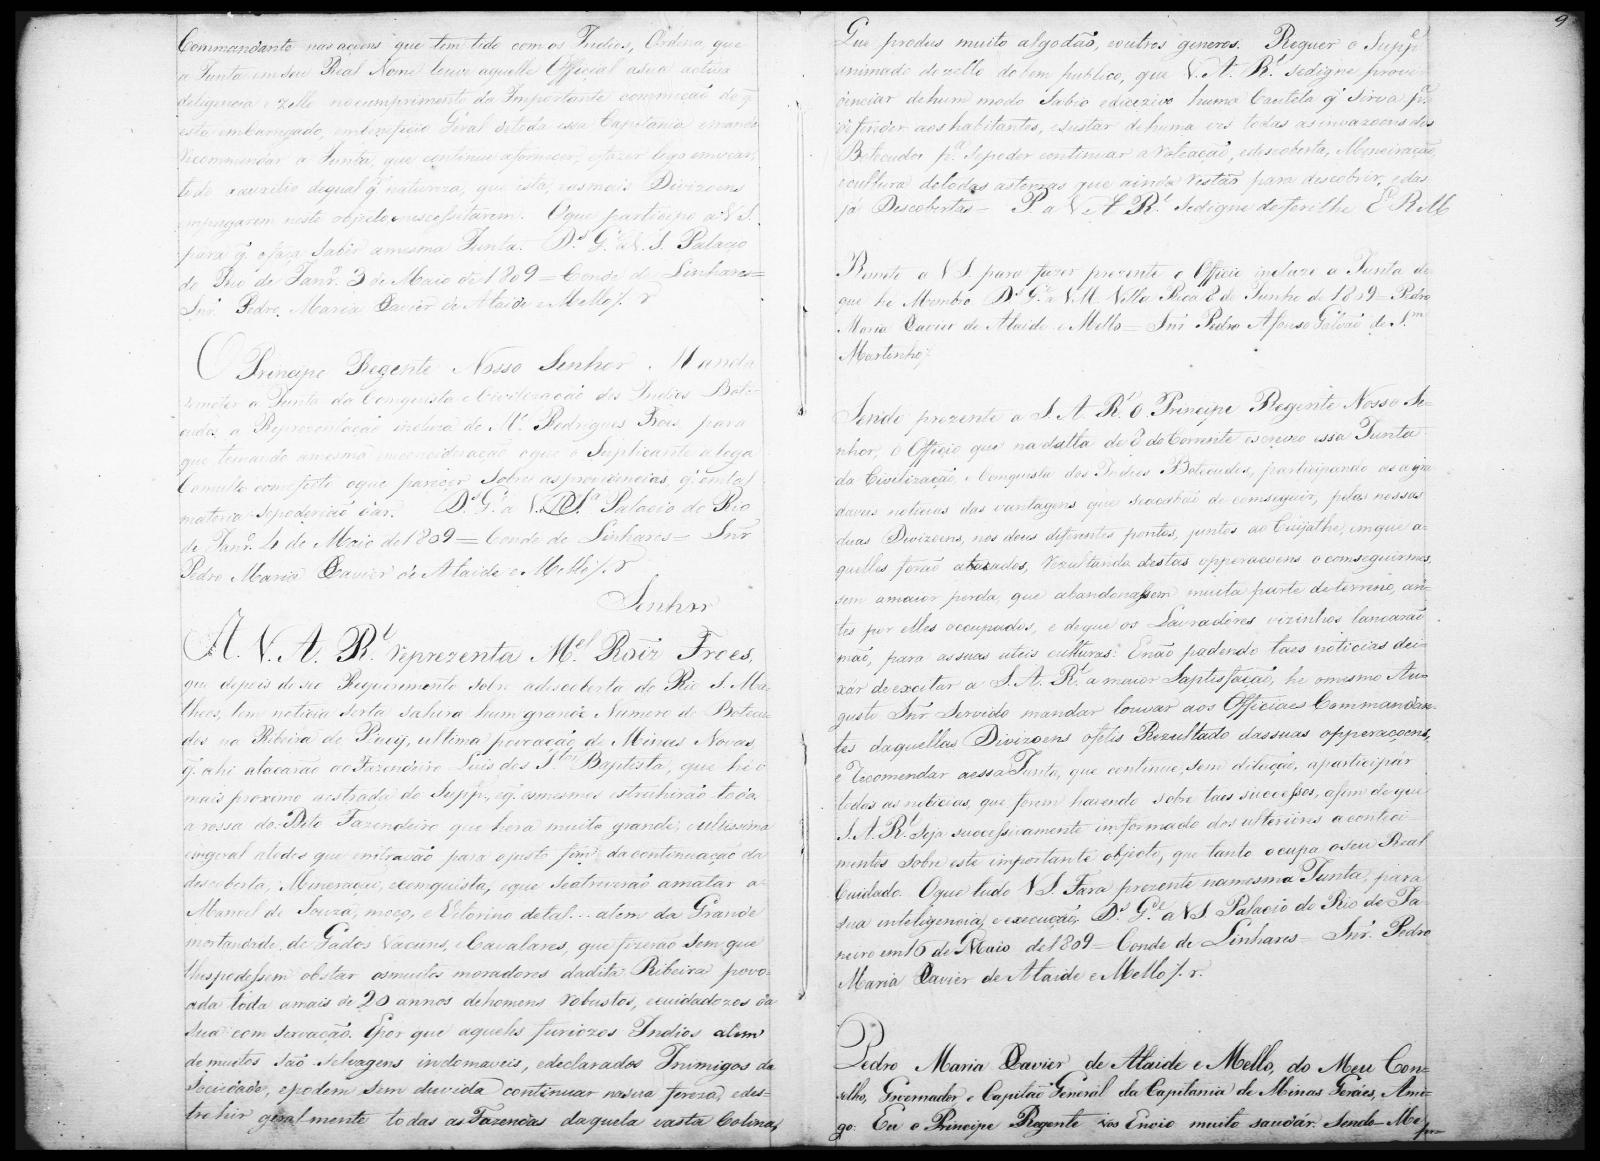 Commandante nas acoens que tem tido com os Indios, Ordena que
a Junta em seu Real Nome louve aquelle Official a sua activa
deligencia e zello no cumprimento da Importante commiçaõ de q̃
esta emCarregado, em beneficio Geral de toda essa Capitania e manda
recommendar a Junta, que continue a fornecer, e fazer logo enviar,
todo o auxilio de qual q.r natureza, que esta, e as mais Divizoens
empregarem neste objeto necessitarem. O que participo a V S.
para q̃ o faça Saber a mesma Junta. D.s G.e a V. S. Palacio
do Rio de Janr.o 3 de Maio de 1809 = Conde de Linhares =
Snr. Pedro Maria Xavier de Ataide e Mello /. r
O Principe Regente Nosso Senhor Manda
remeter a Junta da Conquista e Civilização dos Indios Bote
cudos a Reprezentação incluza de M.l Rodrigues Froes, para
que tomando a mesma em concideração o que o Suplicante alega
Consulte com efeito o que parecer Sobre as providencias, q̃ em tal
materia se poderião dar. D.s G.e a V. S.a Palacio do Rio
de Janr.o 4 de Maio de 1809 = Conde de Linhares = Snr
Pedro Maria Xavier de Ataide e Mello /. r
Senhor
A. V. A. R.l reprezenta M.el Roiz Froes,
que depois de seo Requerimento sobre a descoberta do Rio S. Ma-
theos, tem noticia serta sahira hum grande Numero de Botecu-
dos na Ribeira do Pacuy, ultima povoação de Minas Novas,
q̃ ahi atacarão ao Fazendeiro Luis dos S.tos Baptista, que he o
mais proximo a estrada do Supp.e, e q̃ os mesmos estruhirão toda
a rossa do Dito Fazendeiro que hera muito grande, e utilissima
em geral a todos que emtravão para o justo fim da continuação da
descoberta, Mineração, e comquista, e que Se atreverão a matar a
Manoel de Souza, moço, e Vitorino de tal... alem da Grande
mortandade, de Gados Vacuns, e Cavalares, que fizerão Sem que
lhes podessem obstar os muitos moradores da dita Ribeira povo-
ada toda a mais de 20 annos de homens robustos, e cuidadozos da
sua comservação. E por que aqueles furiozos Indios alem
de muitos são selvagens indomaveis, e declarados Inimigos da
Sociedade, e podem sem duvida continuar na sua fereza, e des-
truhir geralmente todas as Fazendas daquela vasta Colina,
9
Que produs muito algodão, e outros generos. Requer o Supp.e
animado do zello do bem publico, que V. A. R.l Se digne provi-
denciar de hum modo Sabio e dicizivo huma Cautela q̃ Sirva p.a
defender aos habitantes, e sustar de huma ves todas as invazoens dos
Botecudos p.a Se poder continuar a Votação, e descoberta, Mineiração,
e cultura de todas as terras que ainda restão para descobrir, e das
já Descobertas = P a V. A. R.l Se digne deferilhe E R M
Remeto a V S. para fazer prezente o Officio incluzo a Junta de
que he Membro D.s G.e a V. M. Villa Rica 8 de Junho de 1809 = Pedro
Maria Xavier de Ataide e Mello = Snr Pedro Afonso Galvão de S.m
Martinho /.
Sendo prezente a S. A. R.l o Principe Regente Nosso Se-
nhor, o Officio que na datta de 8 do Corrente escreveo essa Junta
da Civilização, e Comquista dos Indios Botecudos, participando as agra
daveis noticias das vantagens que se acabão de comseguir, pelas nossas
duas Divizoens, nos dous diferentes pontos, juntos ao Cuijathe, em que a-
quelles forão atacados, Rezultando destas opperacoens o conseguirmos,
sem a maior perda, que abandonassem muita parte de terreno, an-
tes por elles occupados, e de que os Lavradores vizinhos lancarão
mão, para as suas uteis culturas: E não padendo taes noticias dei-
xár de excitar a S. A. R.l a maior Saptisfação, he o mesmo Au-
gusto Snr Servido mandar louvar aos Officiaes Commandan-
tes daquellas Divizoens o felis Rezultado das suas opperaçoens,
e Recomendar a essa Junta, que continue, sem dilação, a participár
todas as noticias, que forem havendo sobre taes successos, afim de que
S. A. R.l Seja successivamente imformado dos ulteriores aconteci-
mentos Sobre este importante objecto, que tanto ocupa o seu Real
Cuidado. O que tudo V S. Fara prezente na mesma Junta, para
sua inteligencia, e execução. D.s G.de a V S. Palacio do Rio de Ja-
neiro em 16 de Maio de 1809 = Conde de Linhares = Snr. Pedro
Maria Xavier de Ataide e Mello /. r.
Pedro Maria Xavier de Ataide e Mello, do Meu Con-
selho, Governador e Capitão General da Capitania de Minas Geráes, Ami-
go: Eu o Principe Regente vos Envio muito saudár. Sendo-Me